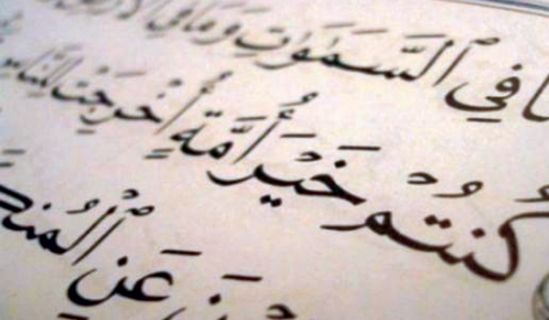 مَا فِي ٱلسَّمَٰوَٰتِ وَمَا فِي ٱلۡأَرۡضِ
كُنتُمۡ خَيۡرَ أُمَّةٍ أُخۡرِجَتۡ لِلنَّاسِ
عَنِ ٱلۡمُنكَرِ